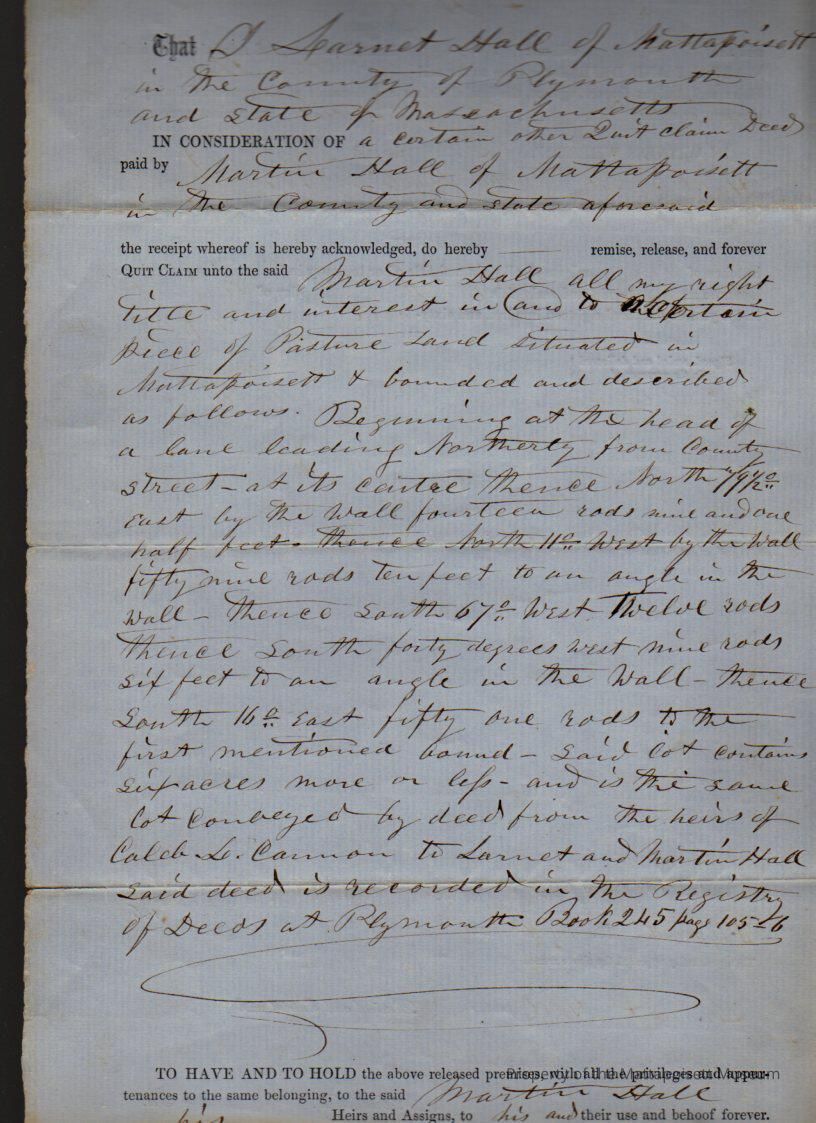 That I Larnet Hall of Mattapoisett
in the County of Plymouth
and state of Massachusetts
IN CONSIDERATION OF a certain other Quit claim Deed
paid by Martin Hall of Mattapoisett
in the County and state aforesaid
the receipt whereof is hereby acknowledged, do hereby remise, release, and forever
QUIT CLAIM unto the said Martin Hall all my right
title and interest in and to certain
piece of Pasture Land situated in
Mattapoisett & bounded and described
as follows. Beginning at the head of
a lane leading Northerly from County
street - at its centre thence North 79½°
east by the Wall fourteen rods nine and one
half feet - thence North 11° West by the Wall
fifty nine rods ten feet to an angle in the
Wall - thence South 67° West Twelve rods
thence South forty degrees west nine rods
six feet to an angle in the Wall - thence
South 16° East fifty one rods to the
first mentioned bound - said lot contains
six acres more or less - and is the same
lot conveyed by deed from the heirs of
Caleb L. Cannon to Larnet and Martin Hall
said deed is recorded in the Registry
of Deeds at Plymouth Book 245 page 105-6
TO HAVE AND TO HOLD the above released premises, with all the privileges and appur-
Property of the Mattapoisett Museum
tenances to the same belonging, to the said Martin Hall
his Heirs and Assigns, to his and their use and behoof forever.